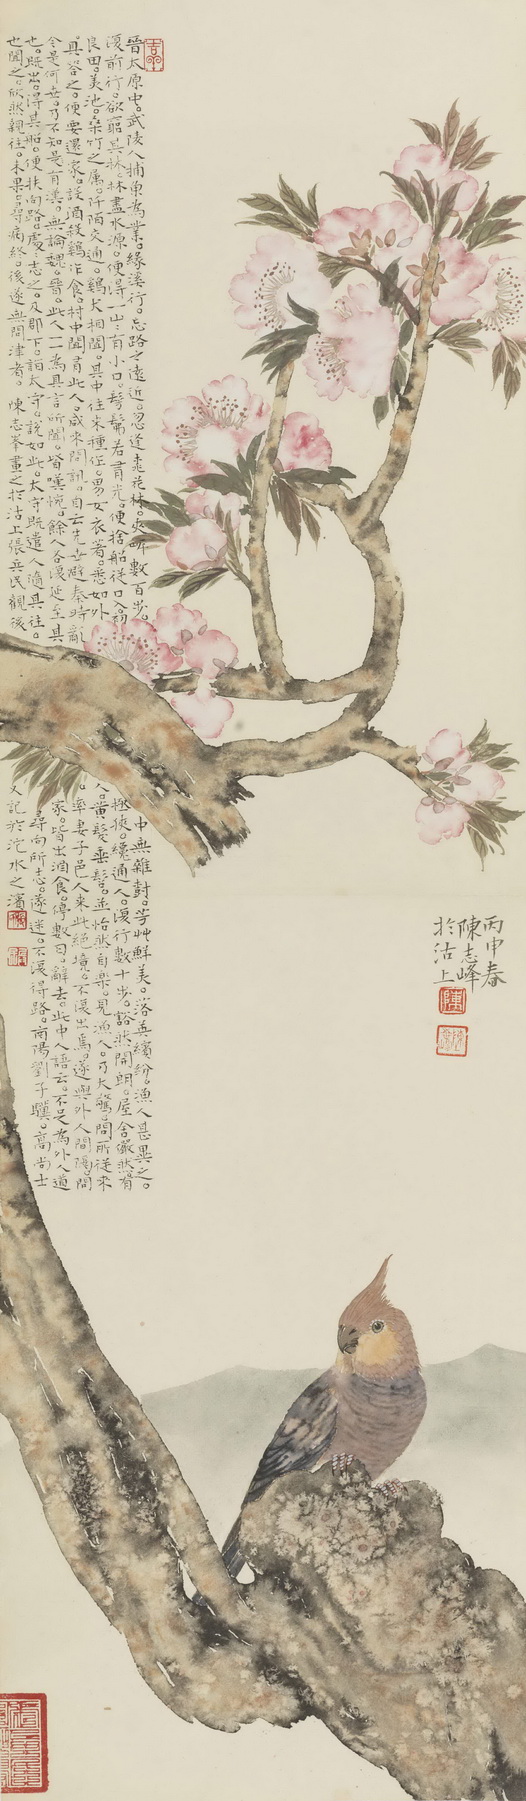 晉太原中。武陵人捕魚為業。緣溪行。忘路之遠近。忽逢桃花林。夾岸數百步。中無雜封。芳艸鮮美。落英繽紛。漁人甚異之。
復前行。欲窮其林。林盡水源。便得一山。山有小口。髣髴若有光。便捨船從口入。初極狹。纔通人。復行數十步。豁然開朗。屋舍儼然。有
良田。美池。桑竹之屬。阡陌交通。鷄犬相聞。其中往來種作。男女衣著。悉如外人。黃髮垂髫。並怡然自樂。見漁人。乃大驚。問所從來
。具答之。便要還家。設酒殺鷄作食。村中聞有此人。咸來問訊。自云先世避秦時亂。率妻子邑人來此絕境。不復出焉。遂與外人間隔。問
今是何世。乃不知是有漢。無論魏。晉。此人一一為具言所聞。皆嘆惋。餘人各復延至其家。皆出酒食。停數日。辭去。此中人語云。不足為外人道
也。既出。得其船。便扶向路。處處志之。及郡下。詣太守。說如此。太守既遣人隨其往。尋向所志。遂迷。不復得路。南陽劉子驥。高尚士
也聞之。欣然親往。未果。尋病終。後遂無問津者。陳志峯畫之於沽上張兵民觀後又記於沱水之濱
丙申春
陳志峰
於沽上